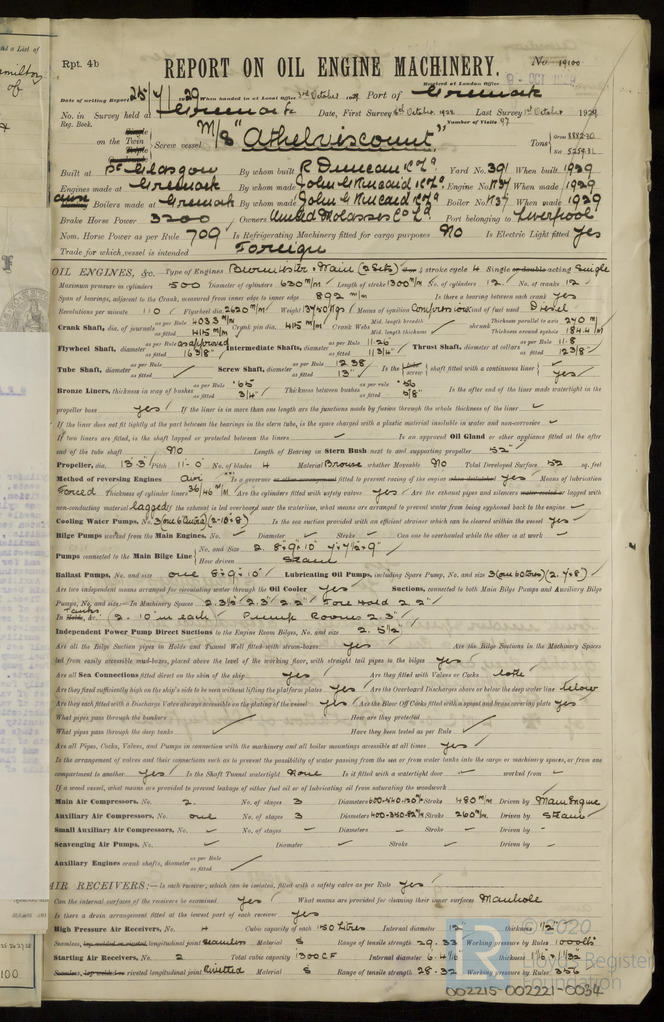 Rpt. 4b
No 19100
REPORT ON OIL ENGINE MACHINERY.
Received at London Office
Date of writing Report 25/4/1929 When handed in at Local Office 3rd October 1929 Port of Greenock
No. in Survey held at Greenock Date, First Survey 6th October 1928 Last Survey 1st October 1929
Reg. Book. Number of Visits 97
on the Twin Screw vessel M/S "Athelviscount" Tons Gross 8882.30 Net 5259.31
Built at Pt Glasgow By whom built R Duncan & Co Ld Yard No. 391 When built 1929
Engines made at Greenock By whom made John G Kincaid & Co Ld Engine No. K37 When made 1929
Boilers made at Greenock By whom made John G Kincaid & Co Ld Boiler No. K37 When made 1929
Brake Horse Power 3200 Owners United Molasses Co Ld Port belonging to Liverpool
Nom. Horse Power as per Rule 709 Is Refrigerating Machinery fitted for cargo purposes No Is Electric Light fitted Yes
Trade for which vessel is intended Foreign
OIL ENGINES, &c. Type of Engines Burmeister & Wain (2 Sets) 2 or 4 stroke cycle 4 Single or double acting Single
Maximum pressure in cylinders 500 Diameter of cylinders 630 m/m Length of stroke 1300 m/m No. of cylinders 12 No. of cranks 12
Span of bearings, adjacent to the Crank, measured from inner edge to inner edge 892 m/m Is there a bearing between each crank yes
Revolutions per minute 110 Flywheel dia. 2620 m/m Weight Means of ignition Compression Kind of fuel used Diesel
Crank Shaft, dia. of journals as per Rule 403.3 m/m as fitted 415 m/m Crank pin dia. 415 m/m Crank Webs Mid. length breadth Mid. length thickness shrunk Thickness parallel to axis 270 m/m Thickness around eyehole 184.4 m/m
Flywheel Shaft, diameter as per Rule as approved as fitted 16 3/8" Intermediate Shafts, diameter as per Rule 11.26 as fitted 11 3/4" Thrust Shaft, diameter at collars as per Rule 11.8 as fitted 12 3/8"
Tube Shaft, diameter as per Rule as fitted Screw Shaft, diameter as per Rule 12.38 as fitted 13" Is the tube screw shaft fitted with a continuous liner yes
Bronze Liners, thickness in way of bushes as per Rule .65 as fitted 3/4" Thickness between bushes as per Rule .56 as fitted 5/8" Is the after end of the liner made watertight in the
propeller boss yes If the liner is in more than one length are the junctions made by fusion through the whole thickness of the liner
If the liner does not fit tightly at the part between the bearings in the stern tube, is the space charged with a plastic material insoluble in water and non-corrosive
If two liners are fitted, is the shaft lapped or protected between the liners Is an approved Oil Gland or other appliance fitted at the after
end of the tube shaft No Length of Bearing in Stern Bush next to and supporting propeller 52"
Propeller, dia. 13'-3" Pitch 11'-0" No. of blades 4 Material Bronze whether Moveable No Total Developed Surface 52 sq. feet
Method of reversing Engines air Is a governor or other arrangement fitted to prevent racing of the engine when declutched yes Means of lubrication
Forced Thickness of cylinder liners 36/40 m/m Are the cylinders fitted with safety valves yes Are the exhaust pipes and silencers water cooled or lagged with
non-conducting material lagged If the exhaust is led overboard near the waterline, what means are arranged to prevent water being syphoned back to the engine
Cooling Water Pumps, No. 3 Is the sea suction provided with an efficient strainer which can be cleared within the vessel yes
Bilge Pumps worked from the Main Engines, No. Diameter Stroke Can one be overhauled while the other is at work
Pumps connected to the Main Bilge Line No. and Size 2. 8"9"10" 7"7½"9" How driven Steam
Ballast Pumps, No. and size one 8"9"10" Lubricating Oil Pumps, including Spare Pump, No. and size 3
Are two independent means arranged for circulating water through the Oil Cooler yes Suctions, connected to both Main Bilge Pumps and Auxiliary Bilge
Pumps, No. and size:— In Machinery Spaces 2.3½" 2.3" 2.2" Fore Hold 2.2"
In Holds, &c. Tanks 2.10" in each Pump Rooms 2.3"
Independent Power Pump Direct Suctions to the Engine Room Bilges, No. and size 2. 5½"
Are all the Bilge Suction pipes in Holds and Tunnel Well fitted with strum-boxes yes Are the Bilge Suctions in the Machinery Spaces
led from easily accessible mud-boxes, placed above the level of the working floor, with straight tail pipes to the bilges yes
Are all Sea Connections fitted direct on the skin of the ship yes Are they fitted with Valves or Cocks both
Are they fixed sufficiently high on the ship's side to be seen without lifting the platform plates yes Are the Overboard Discharges above or below the deep water line below
Are they each fitted with a Discharge Valve always accessible on the plating of the vessel yes Are the Blow Off Cocks fitted with a spigot and brass covering plate yes
What pipes pass through the bunkers How are they protected
What pipes pass through the deep tanks Have they been tested as per Rule
Are all Pipes, Cocks, Valves, and Pumps in connection with the machinery and all boiler mountings accessible at all times yes
Is the arrangement of valves and their connections such as to prevent the possibility of water passing from the sea or from water tanks into the cargo or machinery spaces, or from one
compartment to another yes Is the Shaft Tunnel watertight None Is it fitted with a watertight door worked from
If a wood vessel, what means are provided to prevent leakage of either fuel oil or of lubricating oil from saturating the woodwork
Main Air Compressors, No. 2. No. of stages 3 Diameters Stroke 480 m/m Driven by Main Engine
Auxiliary Air Compressors, No. one No. of stages 3 Diameters Stroke 260 m/m Driven by Steam
Small Auxiliary Air Compressors, No. No. of stages Diameters Stroke Driven by
Scavenging Air Pumps, No. Diameter Stroke Driven by
Auxiliary Engines crank shafts, diameter as per Rule as fitted
AIR RECEIVERS:— Is each receiver, which can be isolated, fitted with a safety valve as per Rule yes
Can the internal surfaces of the receivers be examined yes What means are provided for cleaning their inner surfaces Manhole
Is there a drain arrangement fitted at the lowest part of each receiver yes
High Pressure Air Receivers, No. 4 Cubic capacity of each 150 Litres Internal diameter 12" thickness ½"
Seamless, lap welded or riveted longitudinal joint Seamless Material S Range of tensile strength 29.33 Working pressure by Rules 1000 lbs
Starting Air Receivers, No. 2 Total cubic capacity 1300 CF Internal diameter thickness
Seamless, lap welded or riveted longitudinal joint Rivetted Material S Range of tensile strength 28-32 Working pressure by Rules 356
© 2020
Lloyd's Register
Foundation
002215-002221-0034